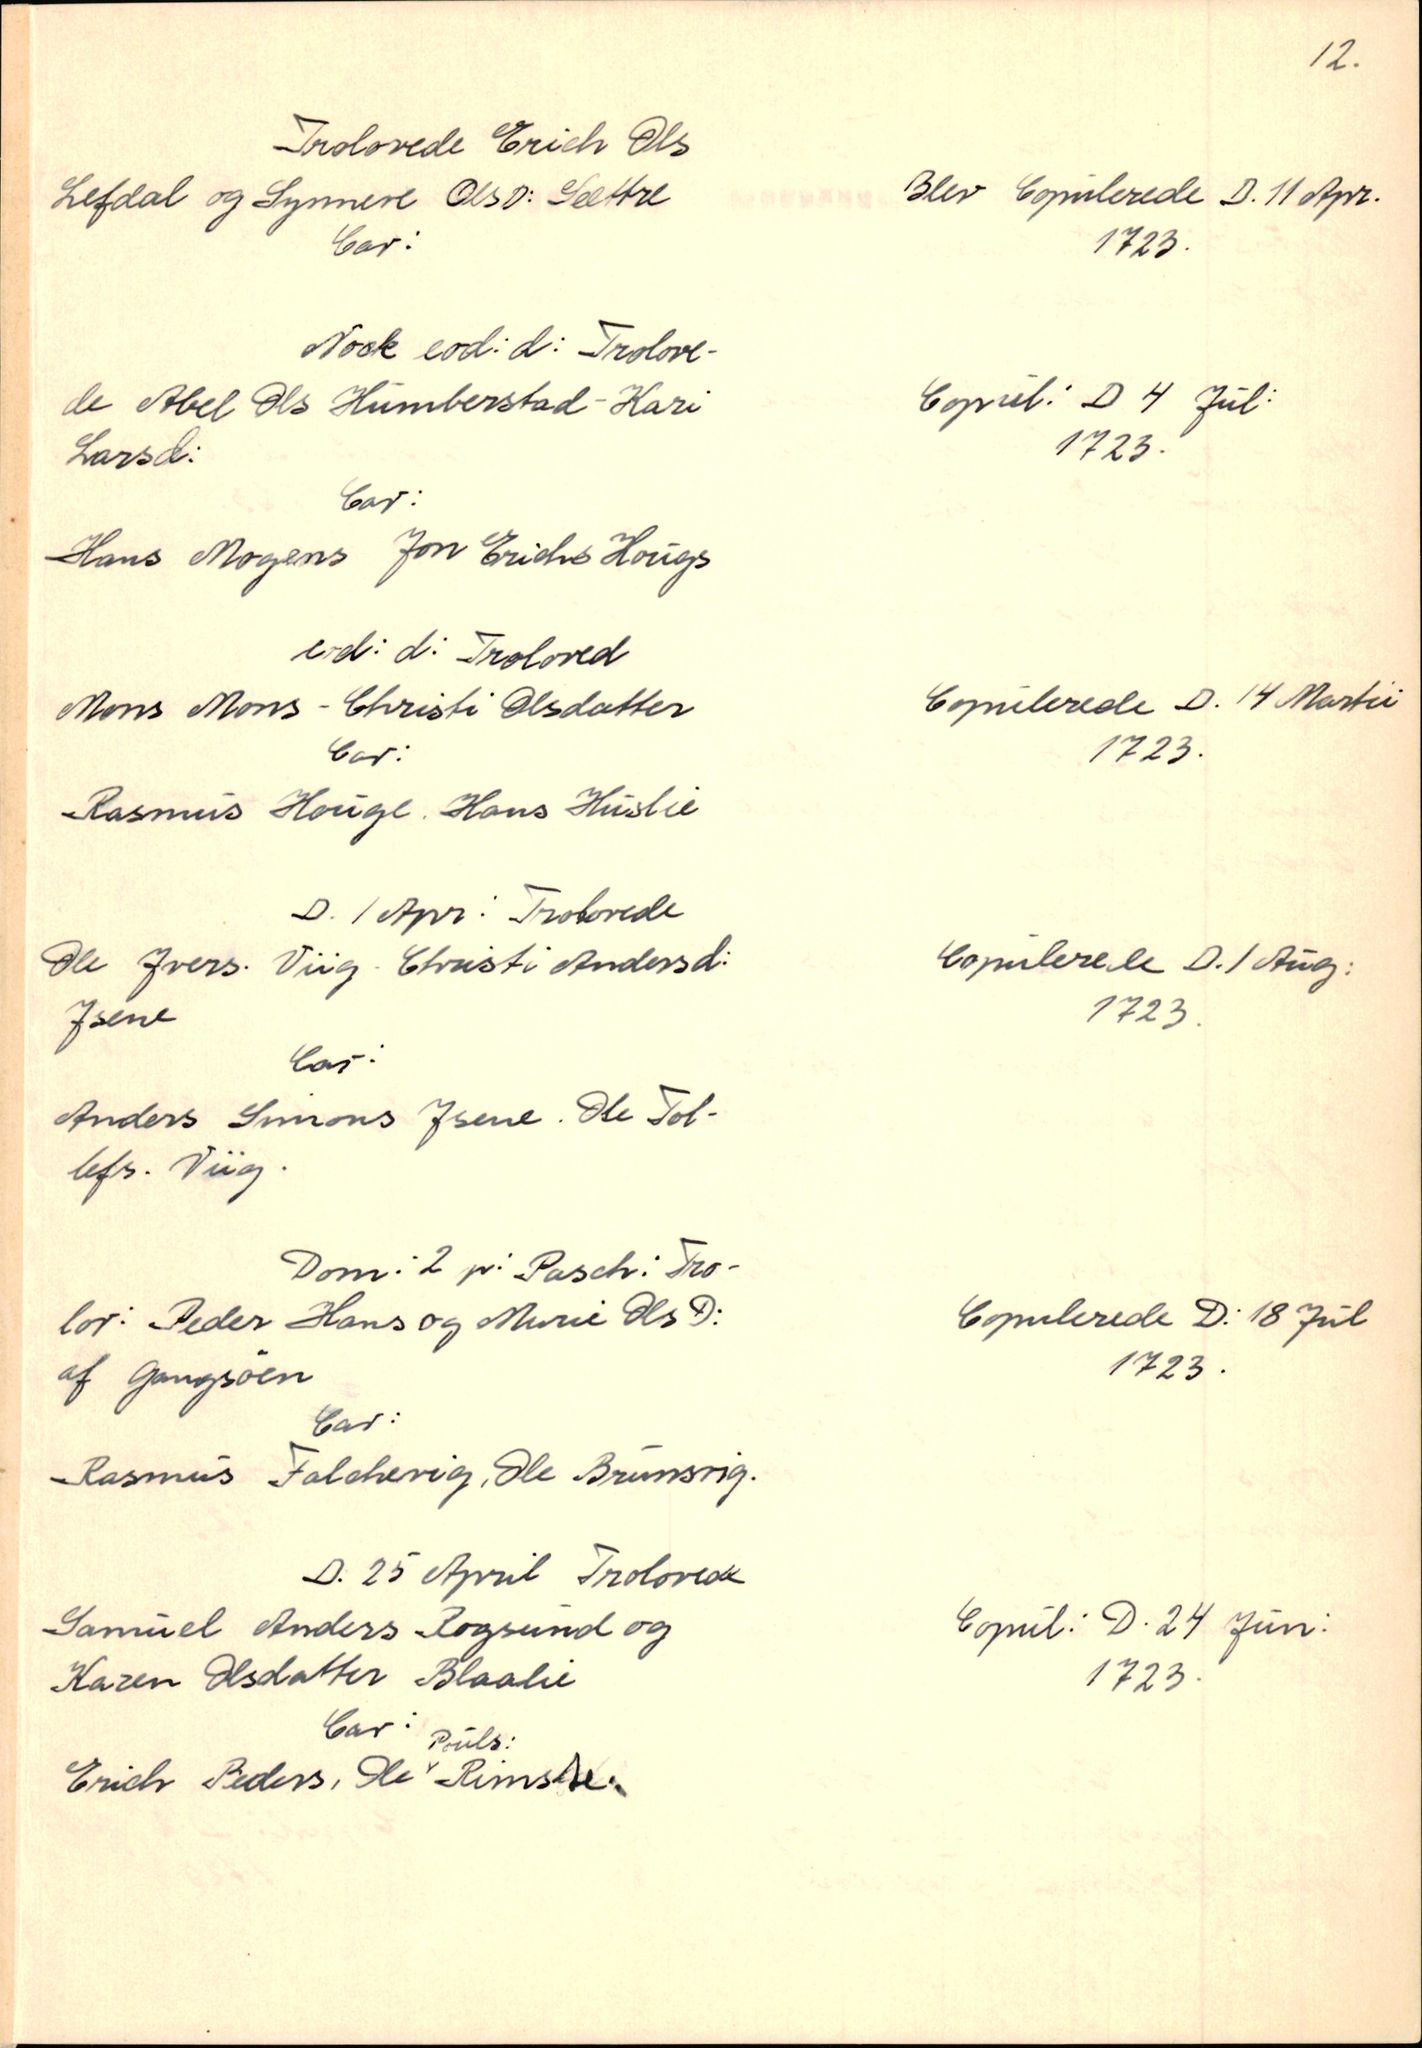 12.
Trolovede Erich Ols
Lefdal og Synneve Ols D: Sættre
Cav:
Blev Copulerede D. 11 Apr.
1723.
Nock eod: d: Trolove-
de Abel Ols Humberstad - Kari
Larsd:
Cav:
Hans Mogens Jon Erichs Hougs
Copul: D 4 Jul:
1723.
eod: d: Troloved
Mons Mons - Christi Olsdatter
Cav:
Rasmus Houge. Hans Huslie
Copulerede D. 14 Martii
1723.
D. 1 Apr: Trolovede
Ole Jvers. Viig - Christi Andersd:
Jsene
Cav:
Anders Simons Jsene. Ole Tol-
lefs. Viig.
Copulerede D. 1 Aug:
1723.
Dom: 2 p: Pasch: Tro-
lov: Peder Hans og Murie Ols D:
af Gangsöen
Cav:
Rasmus Falchevig, Ole Brunsvig.
Copulerede D: 18 Jul
1723.
D. 25 April Trolovede
Samuel Anders Rogsund og
Karen Olsdatter Blaalie
Cav:
Pouls:
Erich Peders, Ole Rimstre.
Copul: D. 24 Jun:
1723.